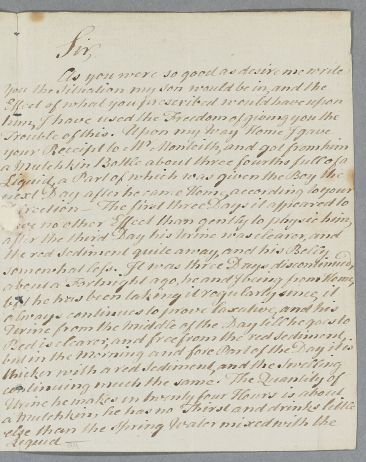 Sir,
As you were so good as desire me write
you the Situation my Son would be in, and the
Effect of what you prescribed would have upon
him, I have used the Freedom of giving you the
Trouble of this. Upon my way Home I gave
your Receipt to Mr. Monteith, and got from him
a Mutchkin Bottle about three fourths full of a
Liquid, a Part of which was given the Boy the
next Day after he came Home, according to your
Direction — The first three Days it appeared to
have no other Effect than gently to physic him,
after the third Day his Urine was clearer, and
the red Sediment quite away, and his Belly
somewhat less. It was three Days discontinued,
about a Fortnight ago, he and I being from Home,
but he has been taking it regularly since, it
always continues to prove laxative, and his
Urine from the middle of the Day till he goes to
Bed is clearer, and free from the red Sediment,
but in the Morning and fore Part of the Day it is
thicker with a red Sediment, and the Swelling
continuing much the same. The Quantity of
Urine he makes in twenty four Hours is about
a Mutchkin, he has no Thirst and drinks little
else than the Spring Water mixed with the
Liquid